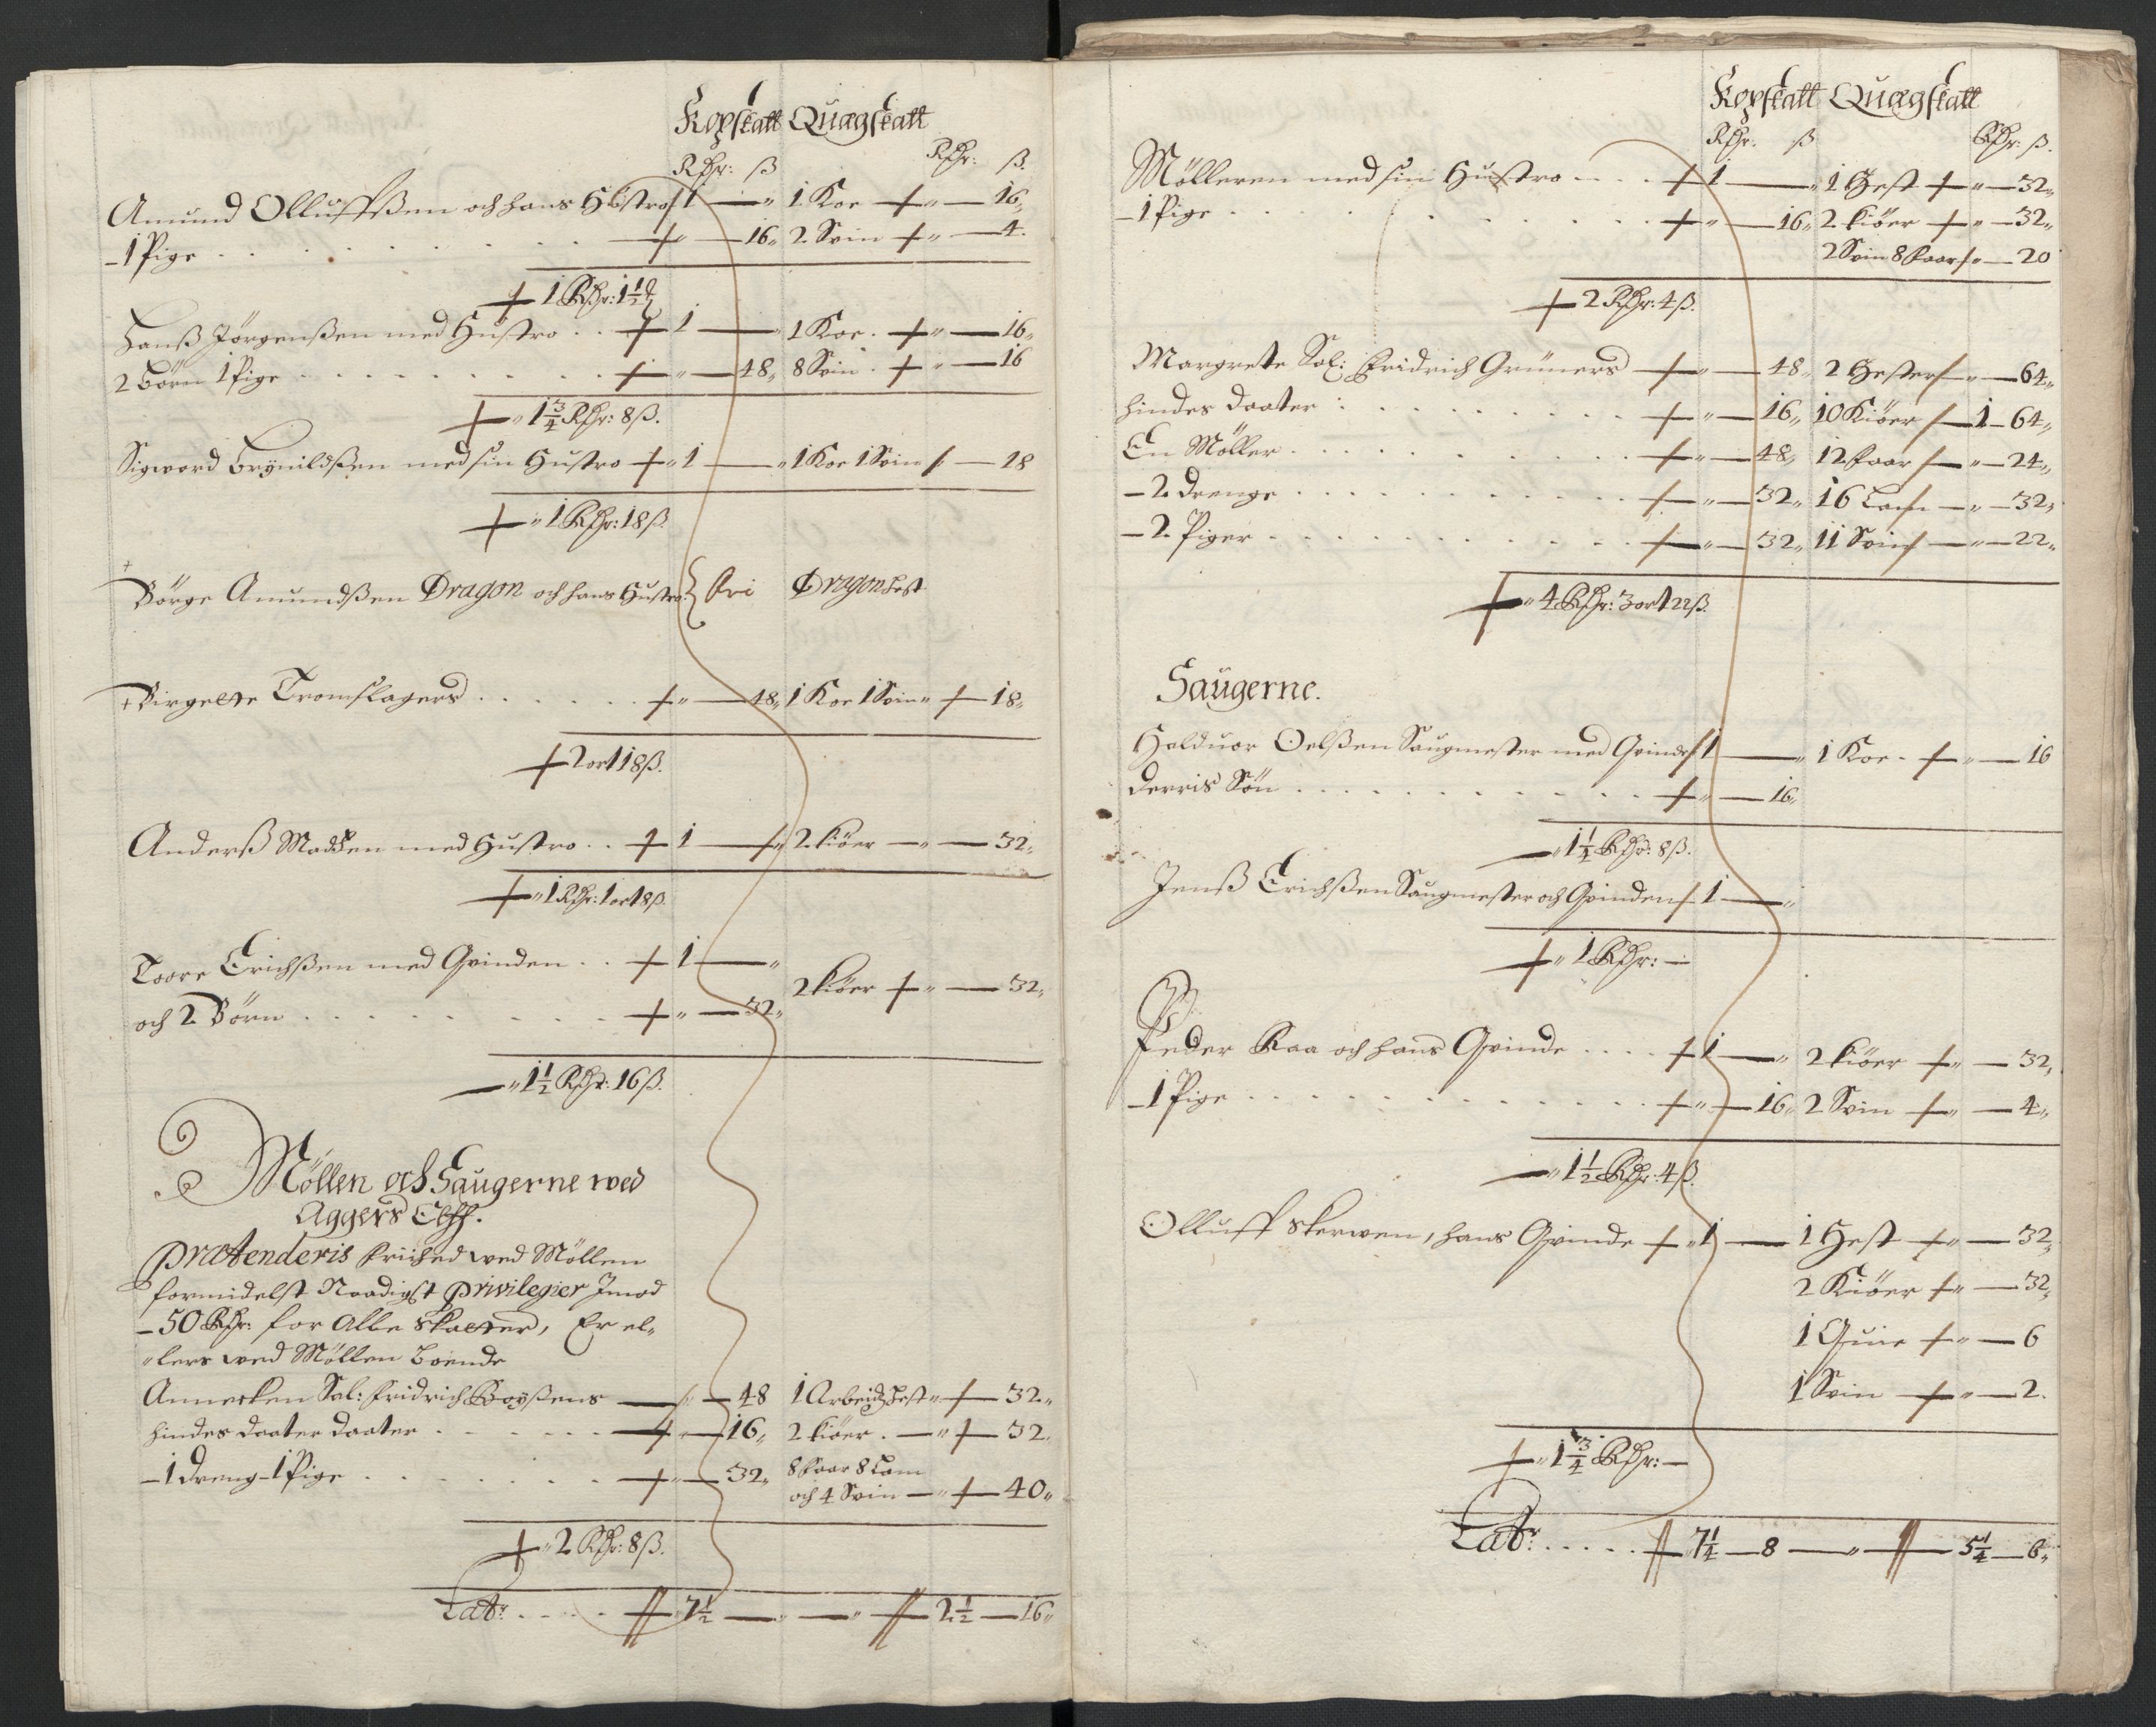 Kopskatt Quægskatt
Rdr: ß Rdr: ß.
Amund Olluffßen och hans Hustro 1 — „ 1 Koe „ — 16„
– 1 Pige . . . . . . „ — 16„ 2 Svin „ — 4.
1 Rdr: 1 1/2
Hanß Jörgenßen med Hustro . . 1 — „ 1 Koe . „ — 16„
2 Börn 1 Pige . . . . . . „ — 48„ 8 Svin . „ — 16
„ 1 3/4 Rdr: 8 ß.
Sigword Brÿnildßen med sin Hustro „ 1 — „ 1 Koe 1 Svin — 18
„ 1 Rdr: 18 ß.
Börge Amundßen Dragon och hans Hustro } fri Dragonhest
Birgette Tromslagers . . . . . „ — 48„ 1 Koe 1 Svin „ — 18„
2 ort 18 ß.
Anderß Madßen med Hustro . . 1 — „ 2 kiöer — „ — 32„
„ 1 Rdr: 1 ort 8 ß.
Toore Erichßen med Qvinden . . 1 — „
2 kiöer „ — 32„
och 2 Börn . . . . . . „ — 32„
— „ 1 1/2 Rdr: 16 ß.
Möllen och Saugerne wed
Aggers Elff.
Prætenderis friihed wed Möllen
formidelst Naadigst Privilegier Imod
– 50 Rdr: for Alle Skatter, Er el„
„lers wed Möllen Boende
Annecken Sal: Fridrich Boyßens — — 48 1 Arbeidzhest „ — 32„
hindes daater daater . . . . . — 16„ 2 kiöer . — „ — 32„
– 1 dreng – 1 Pige . . . . . „ — 32„ 8 faar 8 Lam
och 4 Svin — „ — 40„
„ 2 Rdr: 8 ß.
Latr: . . . . 7 1/2 — „ — „ 2 1/2 — 16„
Kopskatt Quægskatt
Rdr: ß Rdr: ß.
Mölleren med sin Hustro . . . . 1 — „ 1 Hest „ — 32„
– 1 Pige . . . . . . „ — 16„ 2 kiöer „ — 32„
2 Svin 8 faar „ — 20
2 Rdr: 4 ß.
Margrete Sal: Fridrich Grüners „ — 48„ 2 Hester „ — 64„
hindes daater : . . . . . „ — 16„ 10 Kiöer — 1 – 64„
En Möller . . . . . . „ — 48„ 12 faar — „ — 24„
– 2 drenge . . . . . . „ — 32„ 16 Lam — „ — 32„
– 2 Piger . . . . . . „ — 32„ 11 Svin — „ — 22„
„ 4 Rdr: 3 ort 22 ß.
Saugerne.
Halduor Oelßen Saugmester med Qvinde 1 — „ 1 Koe . „ — 16
derris Sön . . . . . . „ — 16„
— „ 1 1/4 Rdr: 8 ß.
Jenß Erichßen Saugmester och Qvinden 1 — „
„ 1 Rdr: —
Peder Raa och hans Qvinde . . . . 1 — „ 2 kiöer „ — 32„
– 1 Pige . . . . . . „ — 16„ 2 Svin „ — 4„
— „ 1 1/2 Rdr: 4 ß.
Olluff Skerwen, hans Qvinde „ 1 — 1 Hest „ — 32„
2 Kiöer „ — 32„
1 Quie „ — 6
1 Svin „ — 2.
„ 1 3/4 Rdr: —
Latr: . . . . . 7 1/4 — 8 — „ — 5 1/4 — 6„